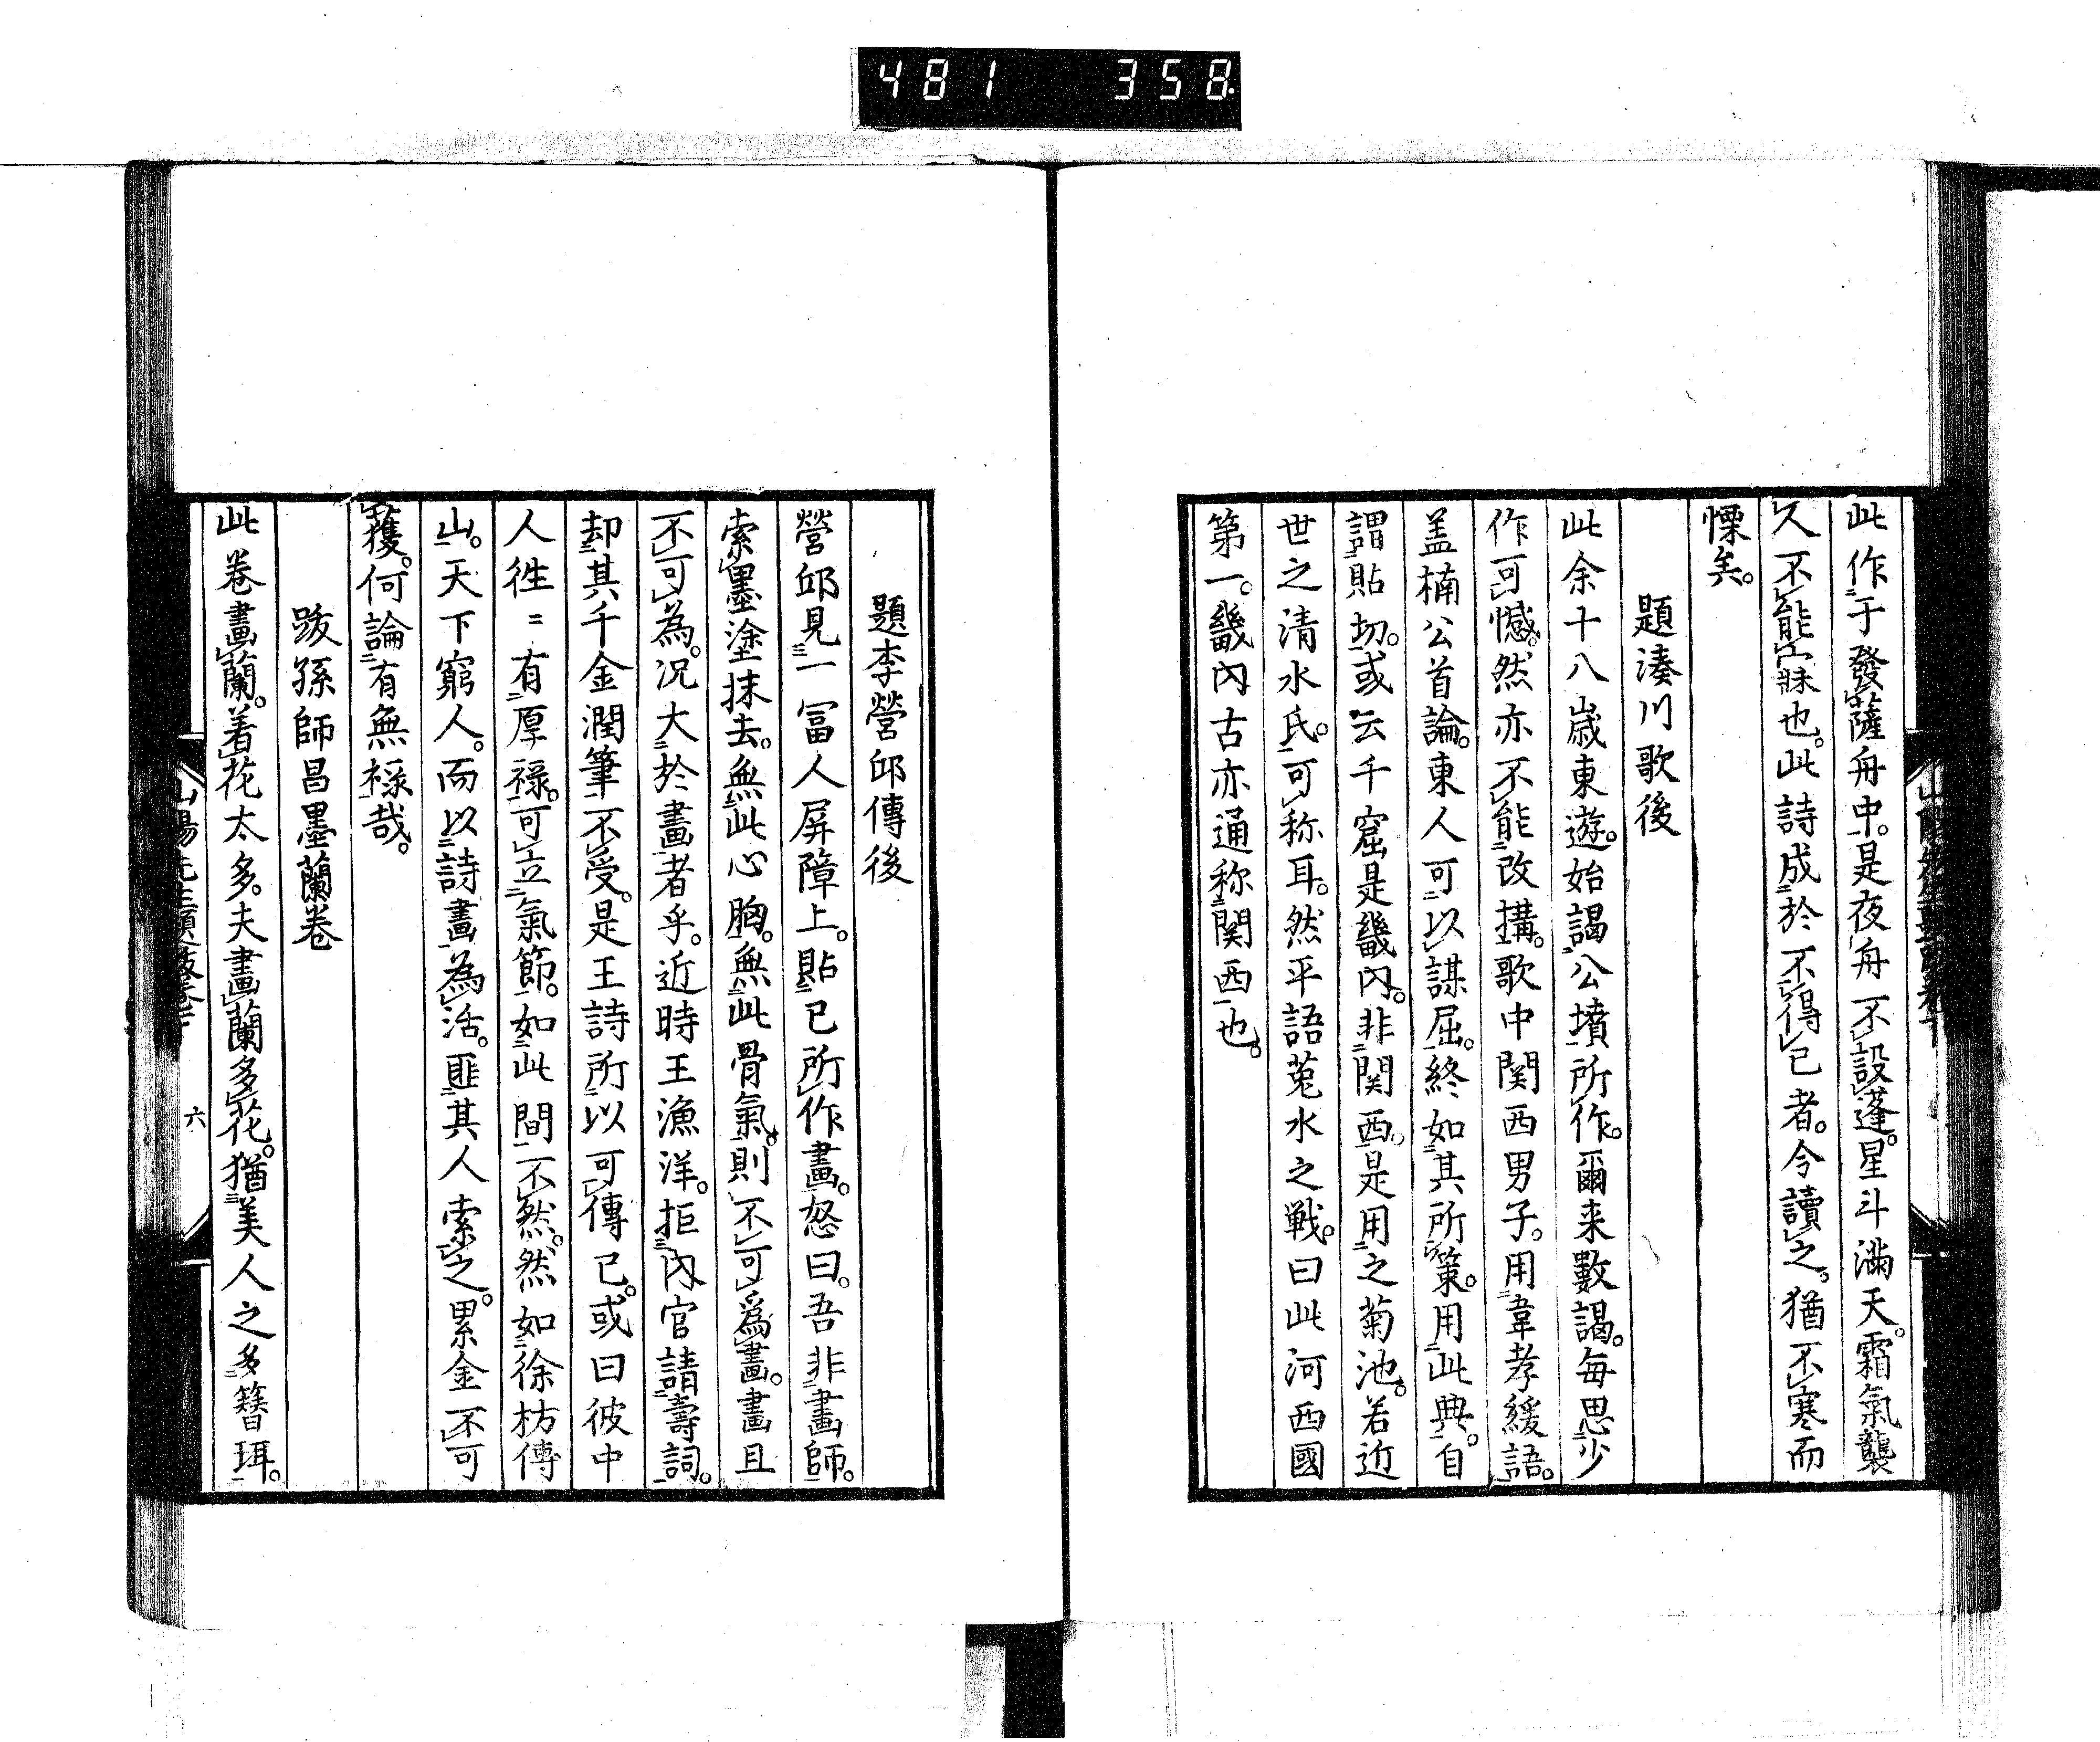 481 358
此作于發薩舟中。是夜舟不設蓬。星斗滿天。霜氣襲
人不能寐也。此詩成於不得已者。今讀之。猶不寒而
慄矣。
題湊川歌後
此余十八歳東遊。始謁公墳所作。爾来數謁。每思少
作可憾。然亦不能改搆。歌中関西男子。用韋孝緩語。
盖楠公首論。東人可以謀屈。終如其所策。用此典。自
謂貼切。或云千窟是畿內。非関西。是用之菊池。若近
世之清水氏。可称耳。然平語菟水之戦。曰此河西國
第一。畿內古亦通称関西也。
題李營邱傳後
營邱見一冨人屏障上。貼已所作畫。怒曰。吾非畫師。
索墨塗抹去。無此心胸。無此骨氣。則不可爲畫。畫且
不可為。况大於畫者乎。近時王漁洋。拒內官請壽詞。
却其千金潤筆不受。是王詩所以可傳已。或曰彼中
人徃〻有厚禄。可立氣節。如此間不然。然如徐枋傅
山。天下窮人。而以詩畫為活。匪其人索之。累金不可
獲。何論有無禄哉。
跋孫師昌墨蘭卷
此卷畫蘭。着花太多。夫畫蘭多花。猶美人之多簪珥。
六